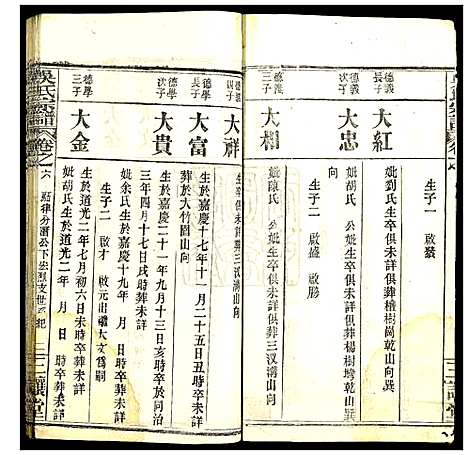 德義
長子
大紅
妣劉氏生卒俱未詳俱葬檀樹崗乾山向巽
生子一 啟發
德義
次子
大忠
妣胡氏 公妣生卒俱未詳俱葬楊樹塆乾山巽
向
生子二 啟盛 啟勝
三子
大相
妣陳氏 公妣生卒俱未詳俱葬三汊溝山向
四子
大祥
生卒俱未詳葬三汊溝山向
德學
長子
大富
生於嘉慶十一月二十五日丑時卒未詳
葬於大竹園山向
德學
次子
大貴
生於嘉慶二十一年九月十三日亥時卒於
三年四月十七日戌時葬未詳
妣余氏生於嘉慶十九年 月 日 時卒葬未詳
生子二 啟才 啟元出繼大文為嗣
德學
三子
大金
生於道光二年七月初六日未時卒葬未詳
妣胡氏生於道光二年 月 日 時卒葬未詳
吳氏宗譜
卷之六
三讓堂